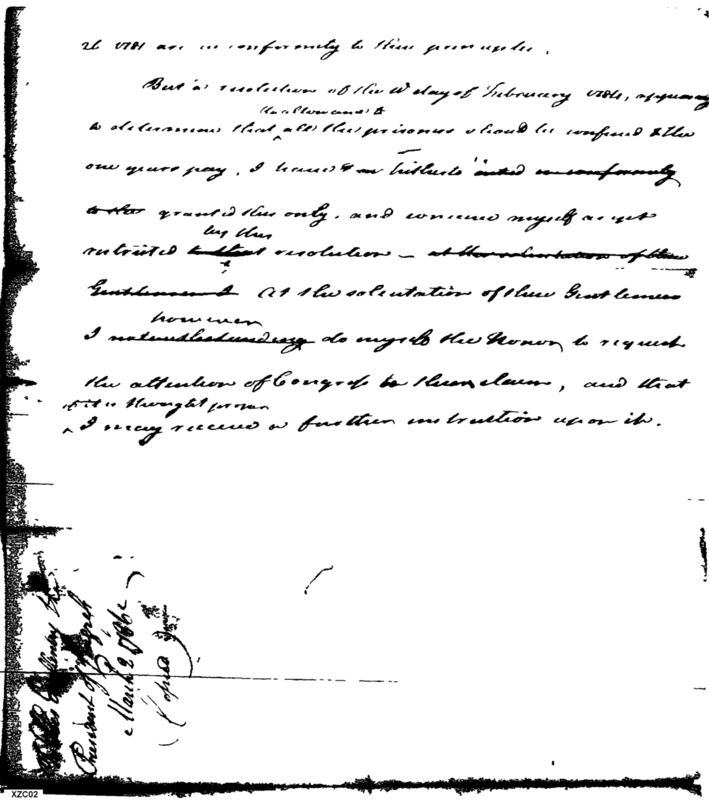 1781 are in conformity to these principles.
But a resolution of the day of February 1784, appearing
the allowance to
to determine that all the prisoners should be confined to the
one years pay, I have hitherto acted in conformity
to this granted this only, and conceive myself as yet
by this
restricted to that resolution — at the solicitation of these
Gentlemen I at the solicitation of these Gentlemen
however
I notwithstanding do myself the Honor, to request
the attention of Congress to their claim, and that
if it is thought proper
I may receive a further instruction upon it.
His Excellency the
President of Congress
March 2
Copied
XZC02